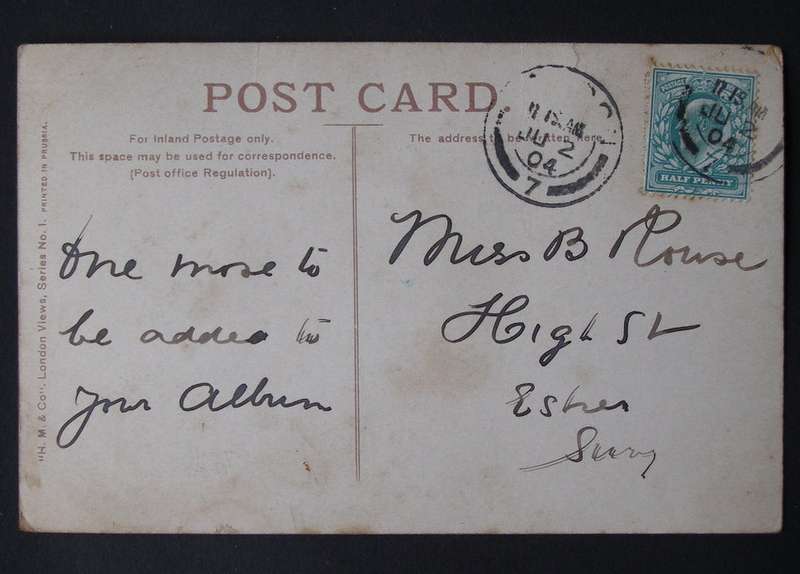 POST CARD.
For Inland Postage only.
This space may be used for correspondence.
(Post office Regulation).
The address to be written here
11.15 AM
JU 2
04
7
POSTAGE
11.15 AM
JU 2
04
7
HALF PENNY
One more to
be added to
your Album
Miss B Rouse
High St
Esher
Surry
"H. M. & Co". London Views, Series No. 1. PRINTED IN PRUSSIA.